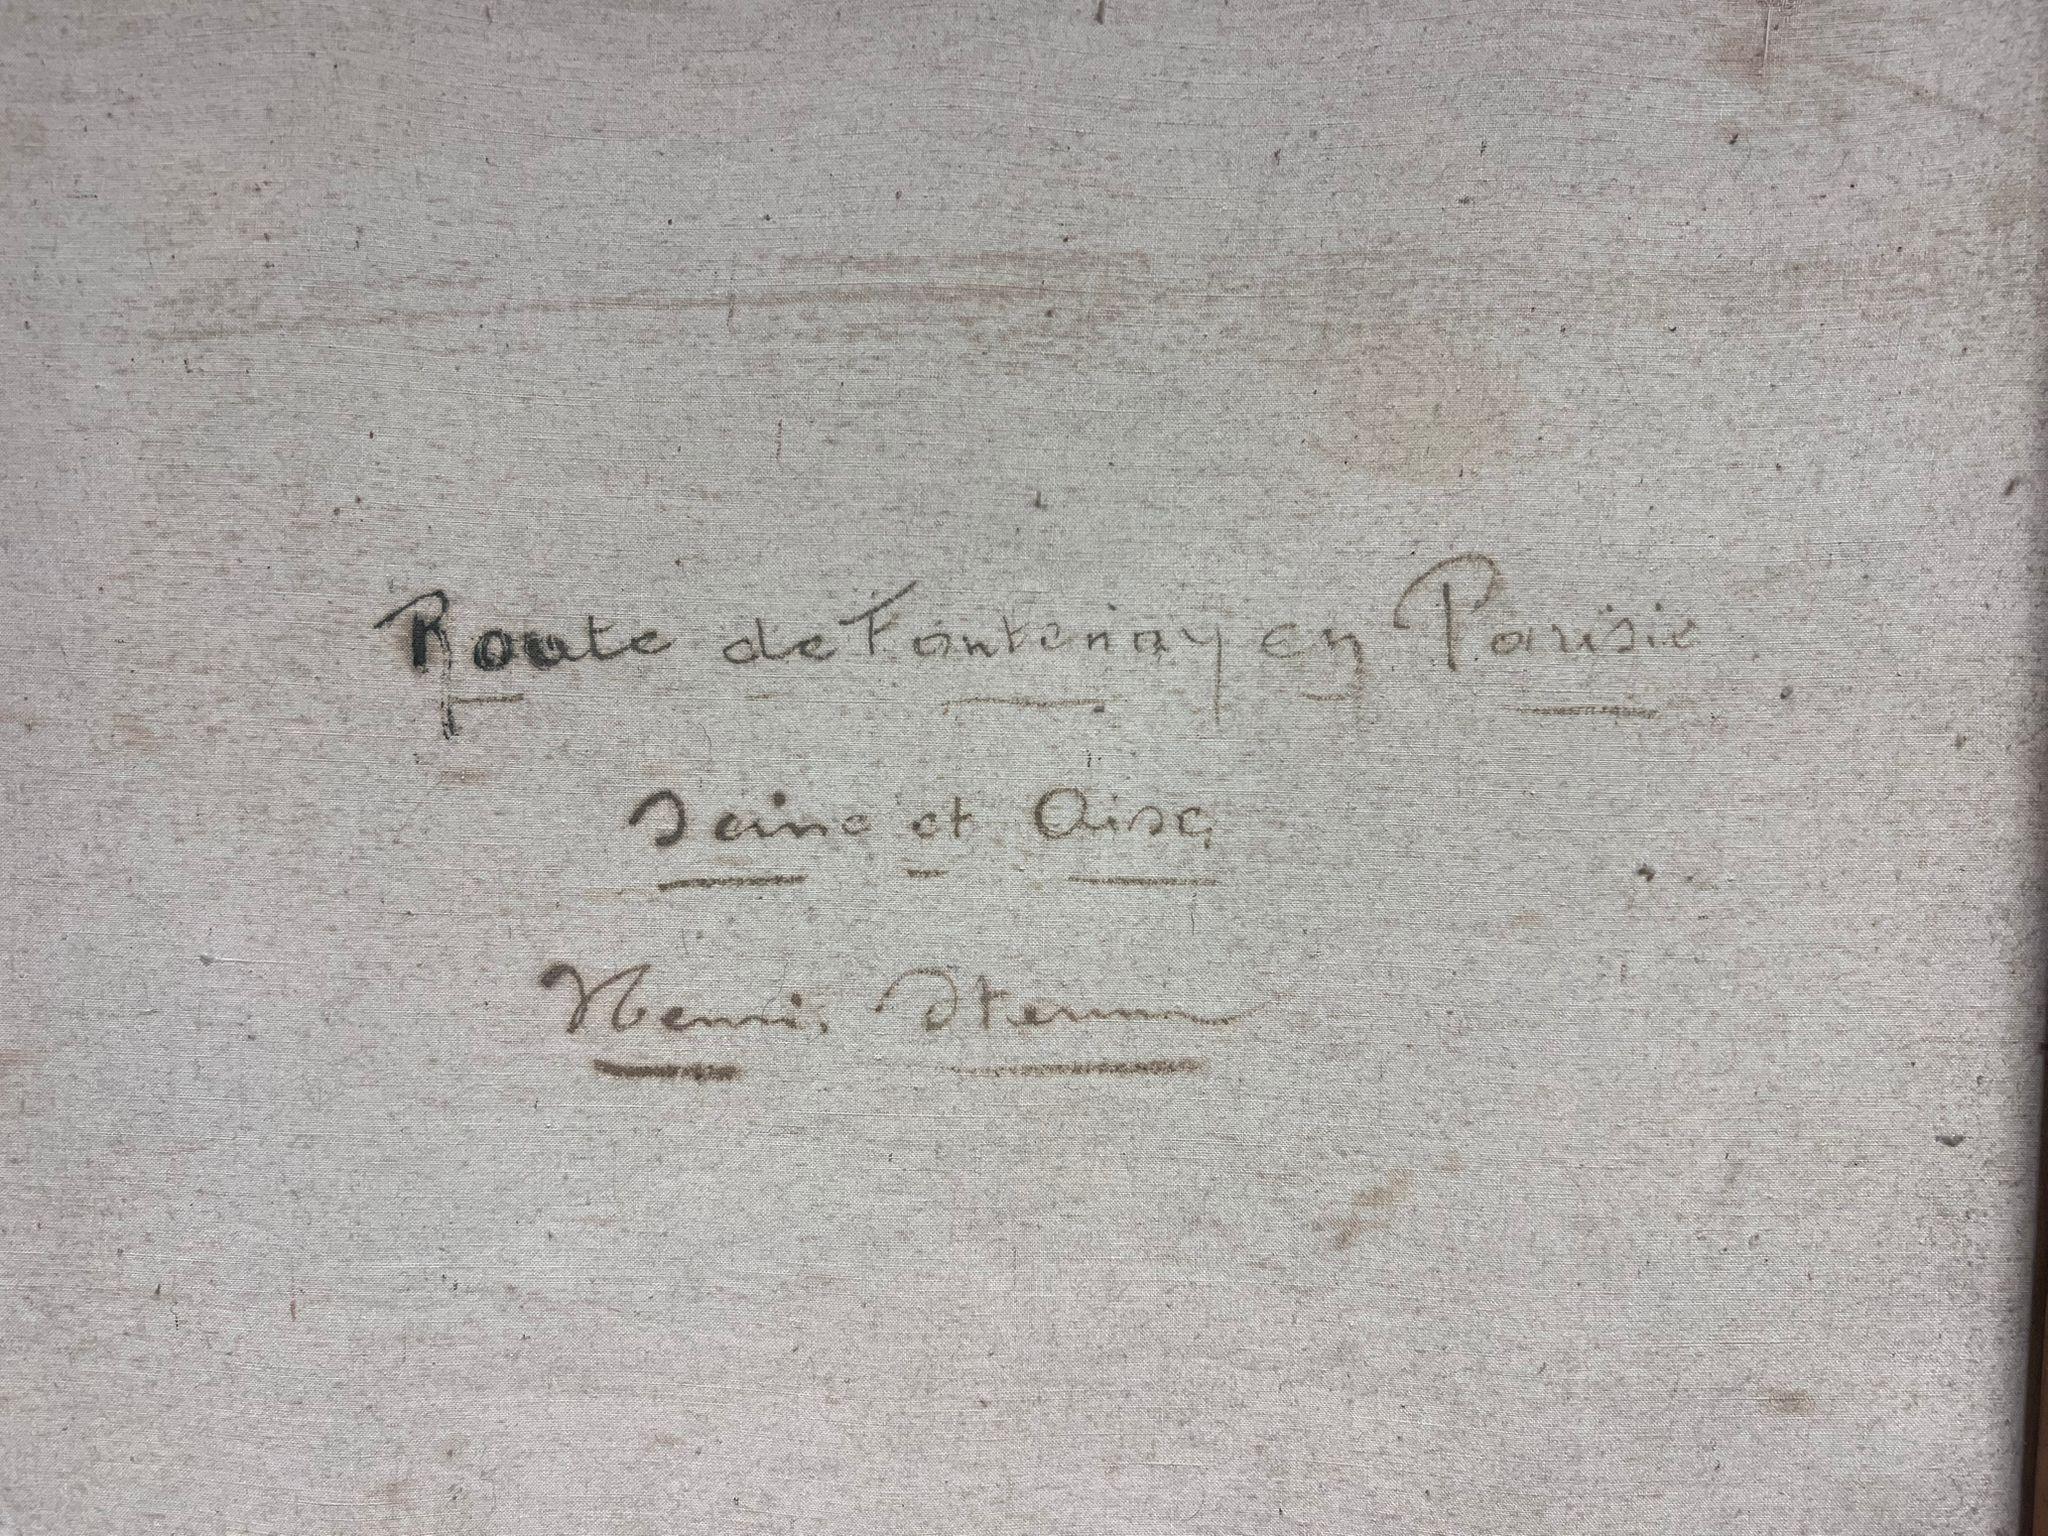 Route de Fontenay en Parisie
Seine et Oise
Henri